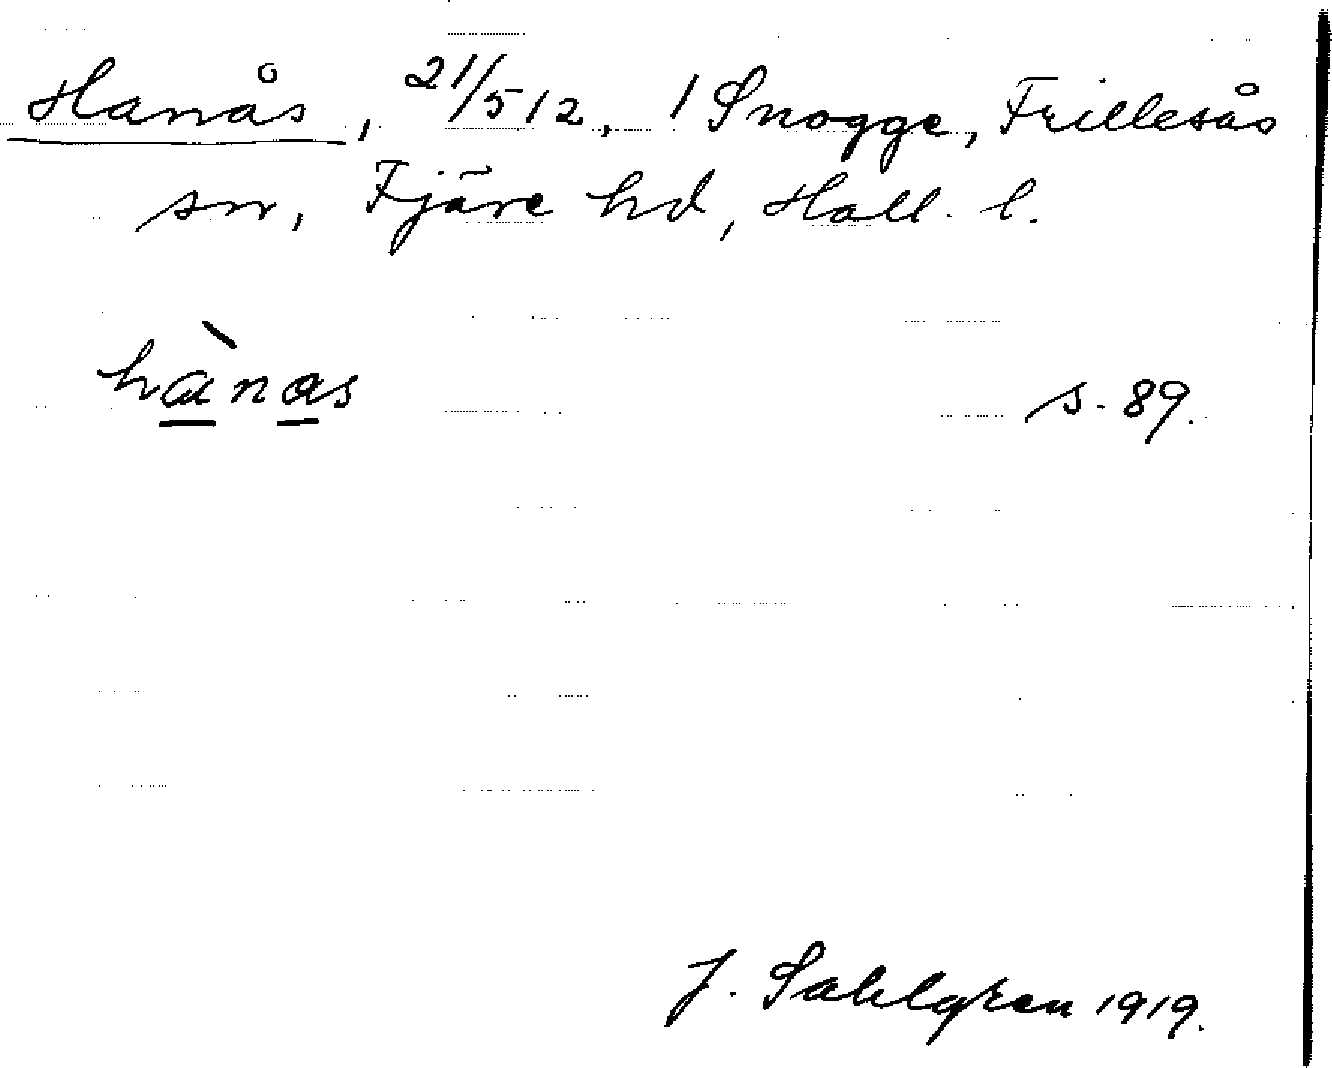 Hanås, 21/512, 1 Snogge, Frillesås
sn, Fjäre hd, Hall. l.
hànas s. 89.
J. Sahlgren 1919.